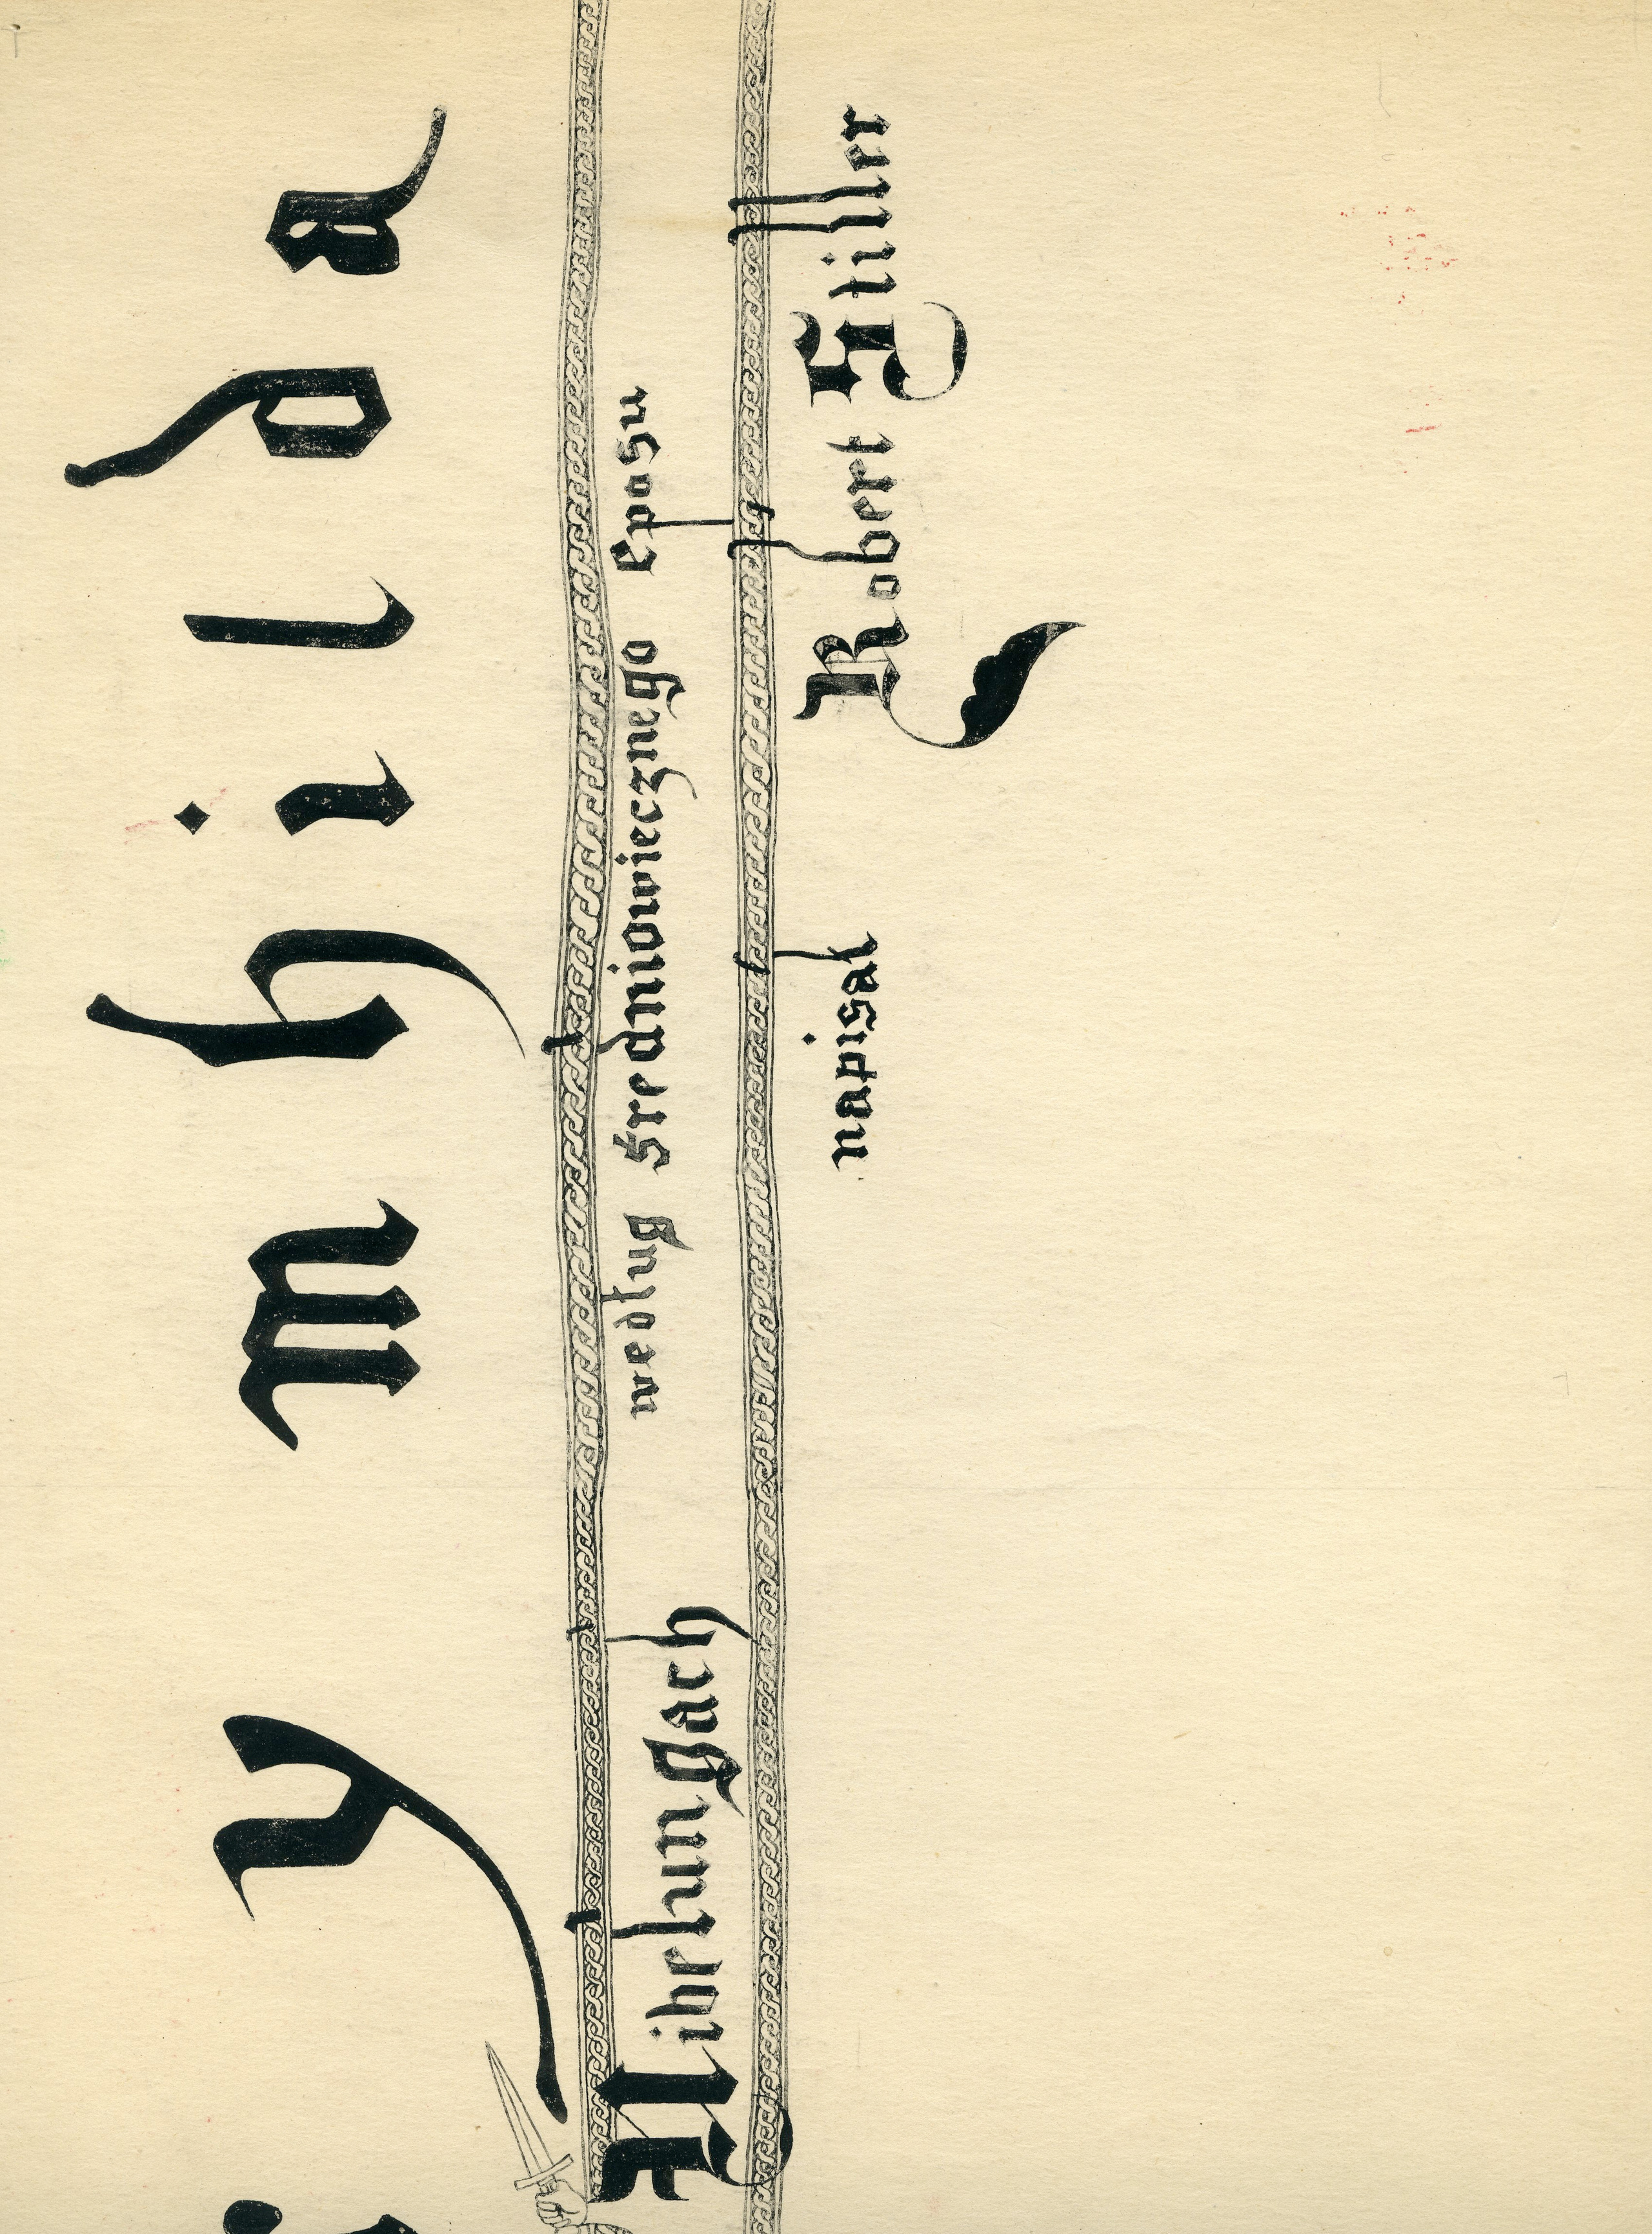 y m h i l d a
Nibelungach według średniowiecznego eposu
napisał Robert Stiller